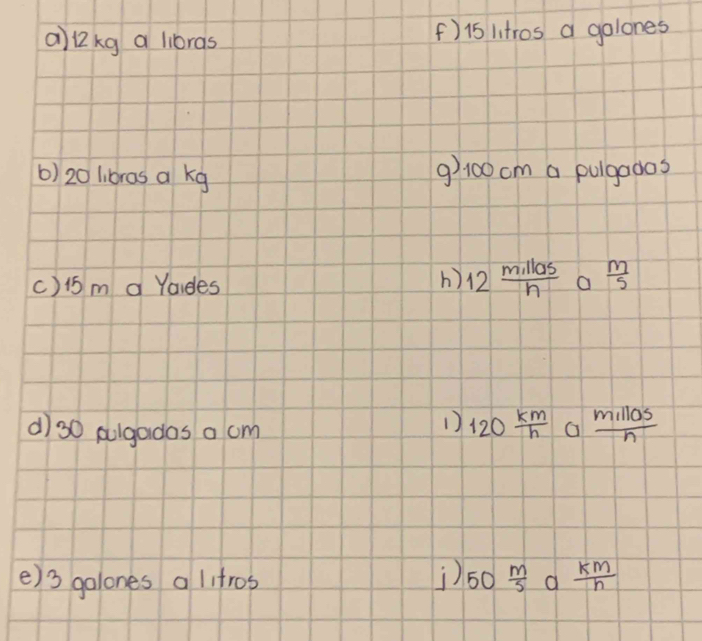 a) 12 kg a libras
b) 20 libras a kg
c) 15 m a Yardes
d) 30 pulgadas a cm
e) 3 galones a litros
f) 15 litros a galones
g) 100 cm a pulgadas
h) 12 millas/h a m/s
i) 120 km/h a millas/h
j) 50 m/s a km/h